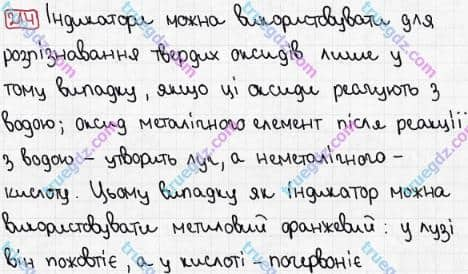 214 Індикатори можна використовувати для
розпізнавання твердих оксидів лише у
тому випадку, якщо ці оксиди реагують з
водою; оксид металічного елемент після реакції
з водою – утворить луг, а неметалічного –
кислоту. Цьому випадку як індикатор можна
використовувати метиловий оранжевий: у лузі
він пожовтіє, а у кислоті – почервоніє